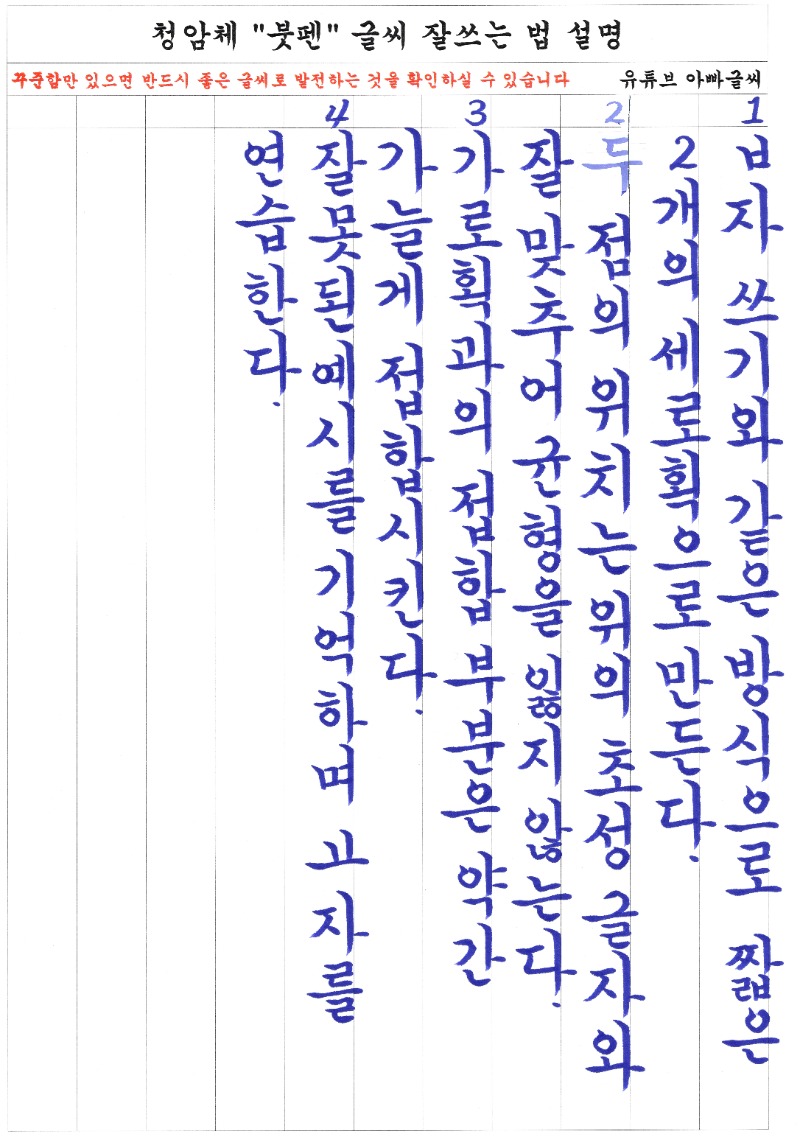 청암체 "붓펜" 글씨 잘쓰는 법 설명
꾸준함만 있으면 반드시 좋은 글씨로 발전하는 것을 확인하실 수 있습니다
유튜브 아빠글씨
1
ㅂ자 쓰기와 같은 방식으로 짧은
2개의 세로획으로 만든다.
2
두 점의 위치는 위의 초성 글자와
잘 맞추어 균형을 잃지 않는다.
3
가로획과의 접합 부분은 약간
가늘게 접합시킨다.
4
잘못된 예시를 기억하며 ㅛ자를
연습한다.